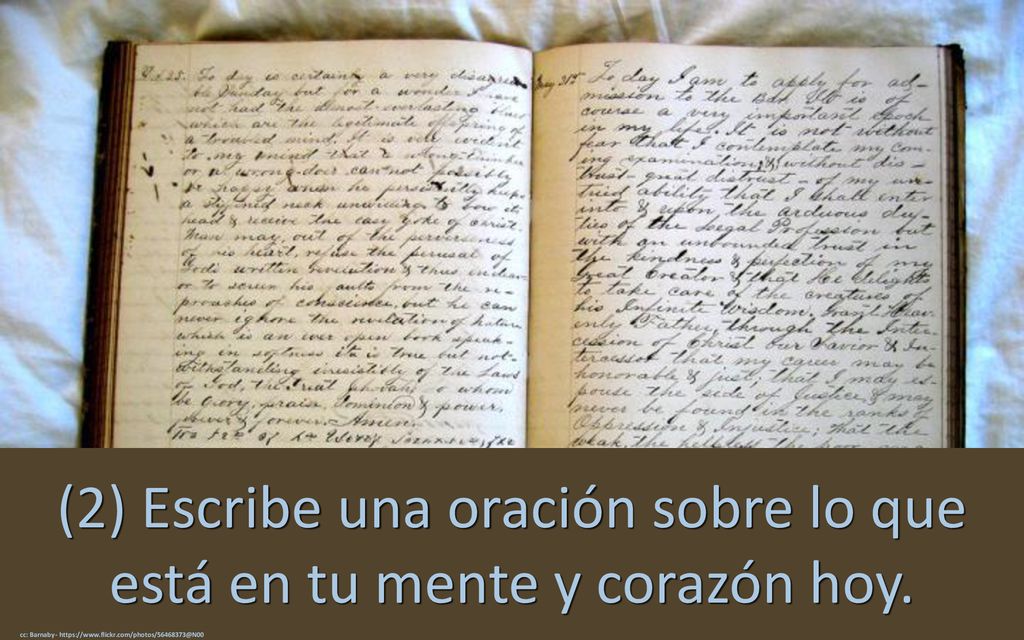 To day is certainly a very disagree-
ble Sunday but for a wonder I have
not had the almost everlasting blues
which are the legitimate offspring of
a troubled mind. It is
to my mind that a
or a wrong-doer can not possibly
be happy when he persistently keeps
a stiffened neck unwilling to bow it
head & receive the easy yoke of Christ.
Man may, out of the perverseness
of his heart, refuse the perusal of
God's written Revelation & thus endeav-
or to screen his faults from the re-
proaches of conscience, but he can
never ignore the revelation of Nature
which is an ever open book speak-
ing in softness it is true but not-
withstanding irresistibly of the Laws
of God, the Great to whom
be Glory, praise, Dominion & power,
forever & forever. Amen.
May 31st To day I am to apply for ad-
mission to the Bar. It is of
course a very important epoch
in my life. It is not without
fear that I contemplate my com-
ing examination, & without dis-
trust - great distrust - of my un-
tried ability that I shall enter
into & upon the arduous du-
ties of the Legal Profession but
with an unbounded trust in
the kindness & perfection of my
Great Creator & that He delights
to take care of the creatures of
his Infinite Wisdom. Grant Heav-
enly Father, through the Inter-
cession of Christ Our Savior & In-
tercessor that my career may be
honorable & just; that I may es-
pouse the side of Justice & may
never be found in the ranks of
Oppression & Injustice; that the
weak, the helpless the poor
(2) Escribe una oración sobre lo que
está en tu mente y corazón hoy.
cc: Barnaby - https://www.flickr.com/photos/56468373@N00